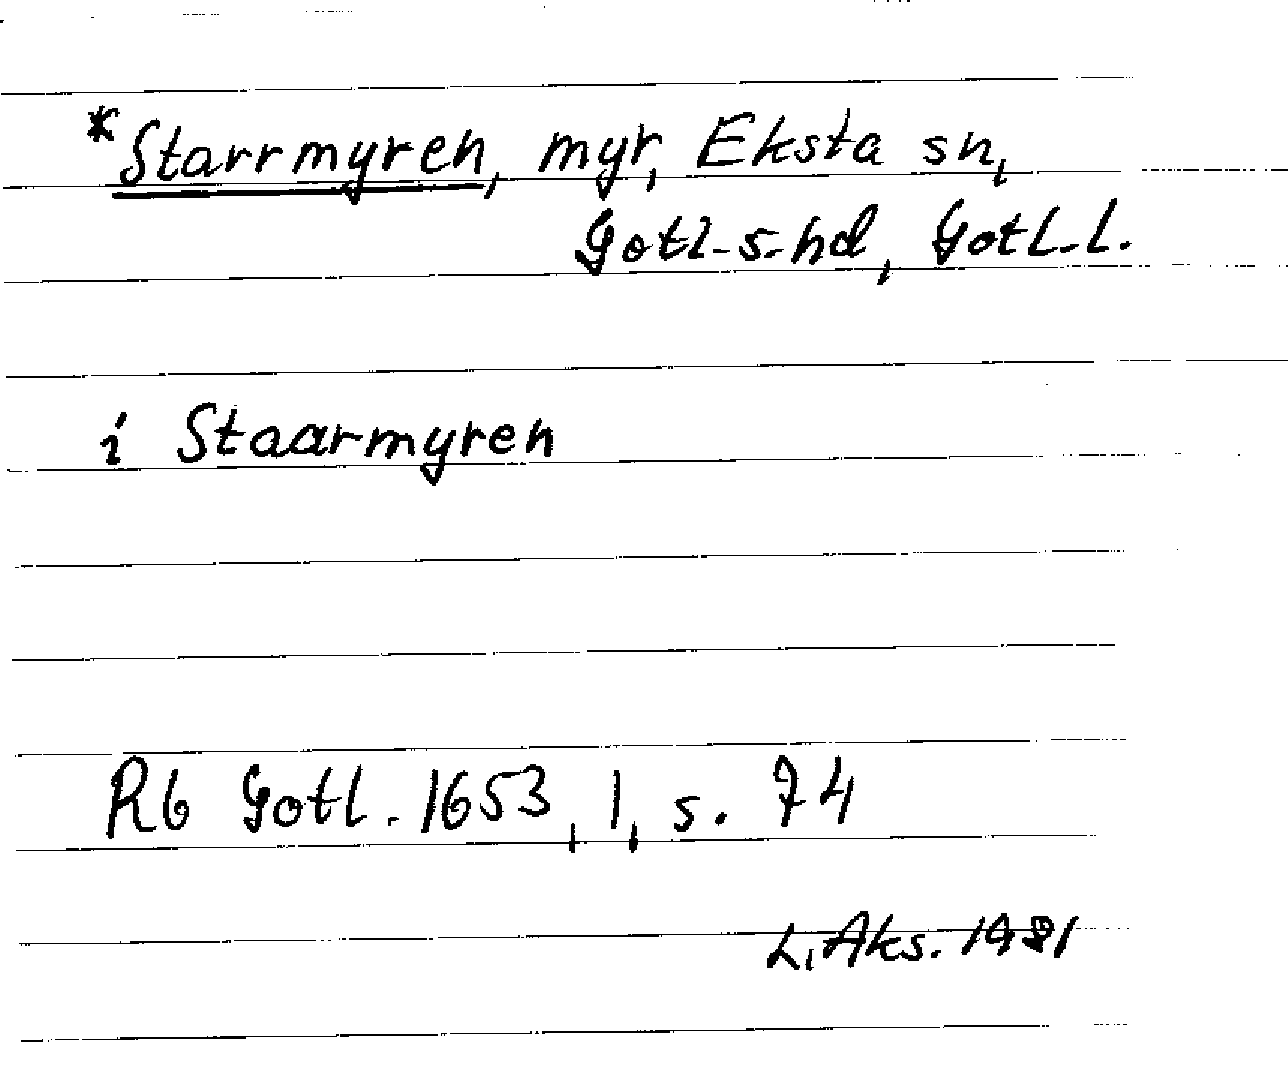 *Starrmyren, myr, Eksta sn,
Gotl-s-hd, Gotl-l.
i Staarmyren
Rb Gotl. 1653, 1, s. 74
L. Aks. 1981